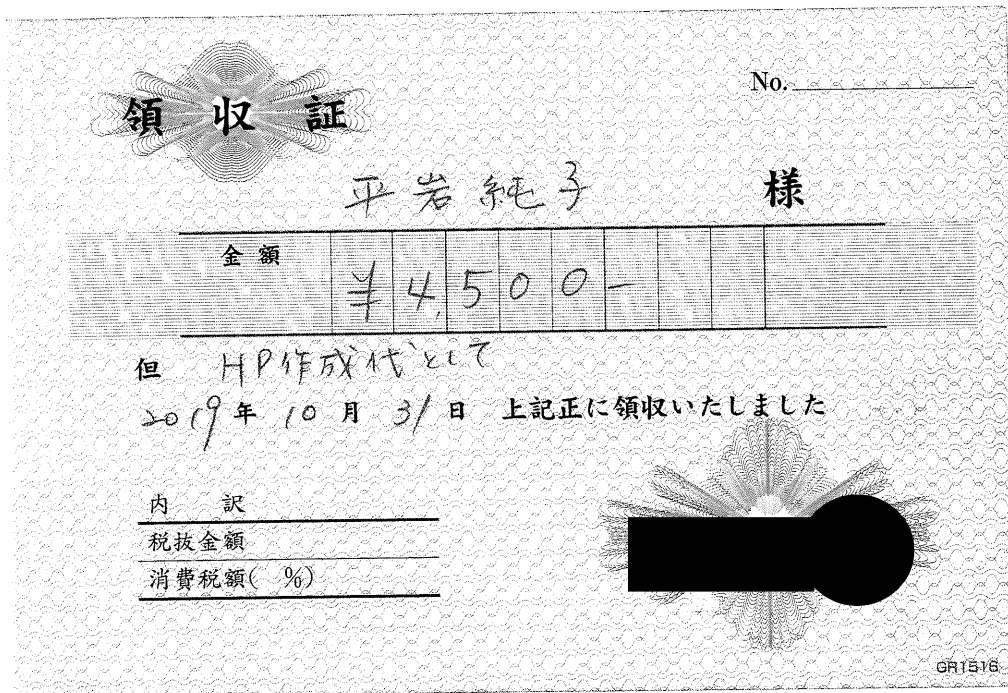 領収証
No.
平岩純子 様
金額 ¥4,500-
但 HP作成代として
2019年10月31日 上記正に領収いたしました
内訳
税抜金額
消費税額( %)
GR1516